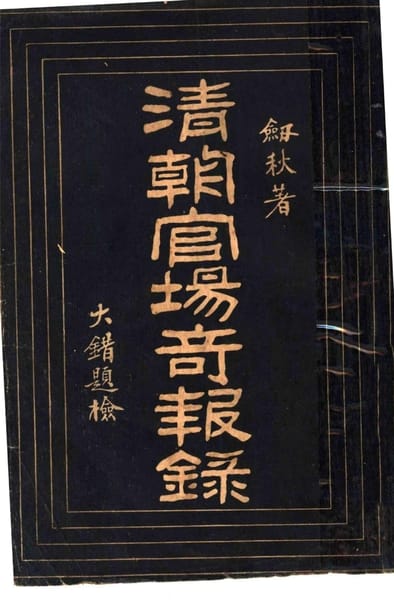 劒秋著
清朝官場奇報錄
大錯題檢